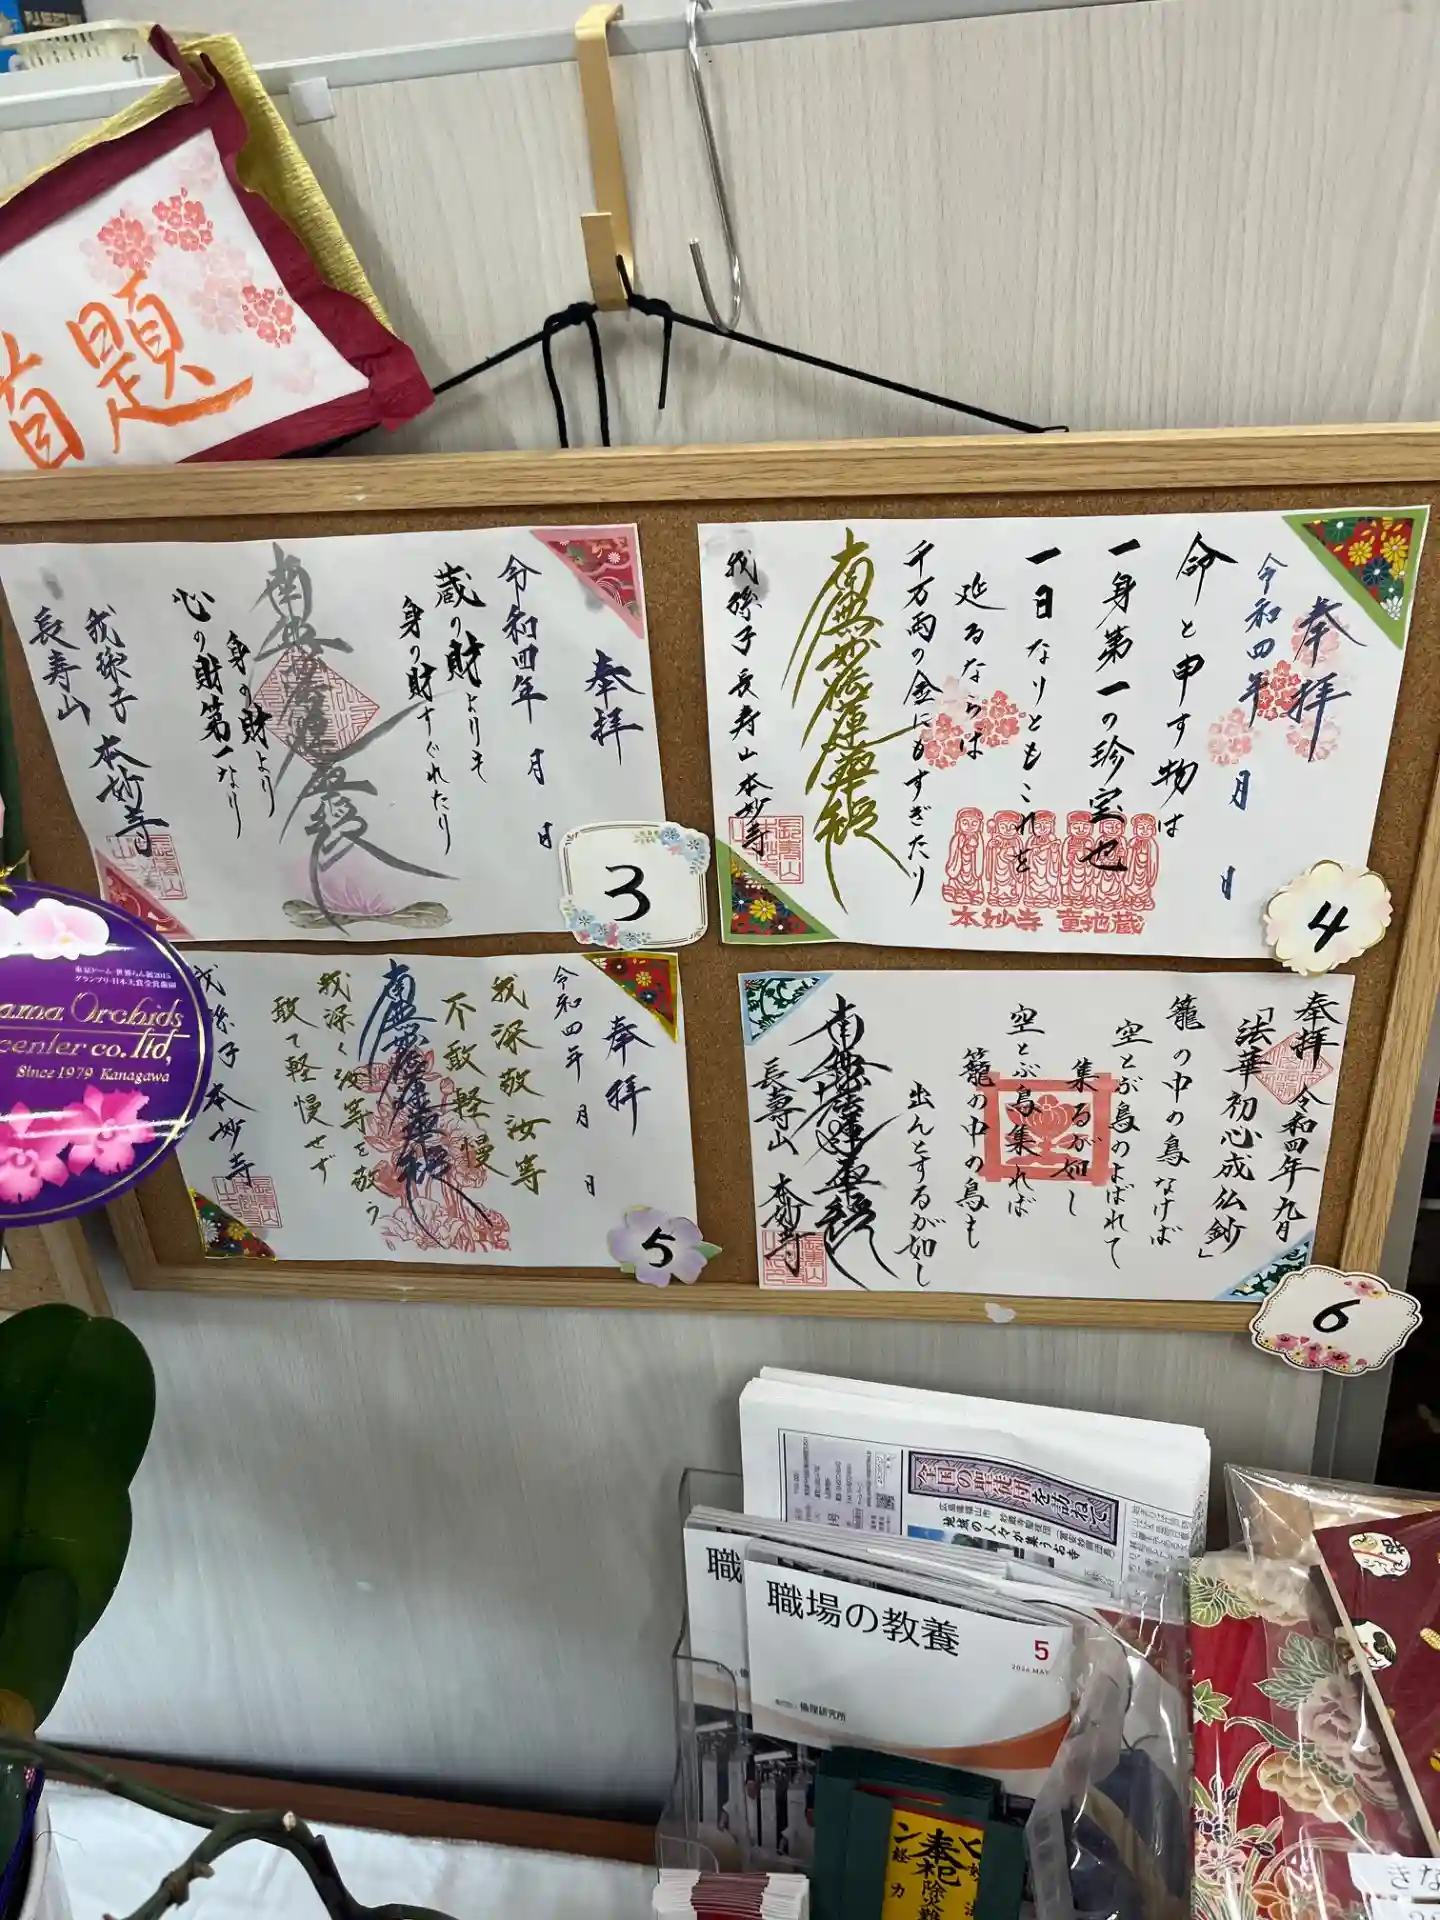 首題
奉拝
令和四年 月 日
蔵の財よりも
身の財すぐれたり
身の財より
心の財第一なり
南無妙法蓮華経
我孫子 本妙寺
長寿山
3
奉拝
令和四年 月 日
命と申す物は
一身第一の珍宝也
一日なりともこれを
延るならは
千万両の金にもすぎたり
南無妙法蓮華経
我孫子 長寿山 本妙寺
本妙寺 童地蔵
4
奉拝
令和四年 月 日
我深敬汝等
不敢軽慢
南無妙法蓮華経
我深く汝等を敬う
敢て軽慢せず
我孫子 本妙寺
5
奉拝 令和四年 九月
「法華初心成仏鈔」
籠の中の鳥なけば
空とぶ鳥のよばれて
集るが如し
空とぶ鳥集れば
籠の中の鳥も
出んとするが如し
南無妙法蓮華経
長寿山 本妙寺
6
東京ドーム・世界らん展2015
グランプリ・日本大賞受賞農園
ama Orchids
center co. ltd,
Since 1979 Kanagawa
全国の聖徒団を訪ねて
地域の人々が集うお寺
職
職場の教養
5
倫理研究所
奉祀
きな